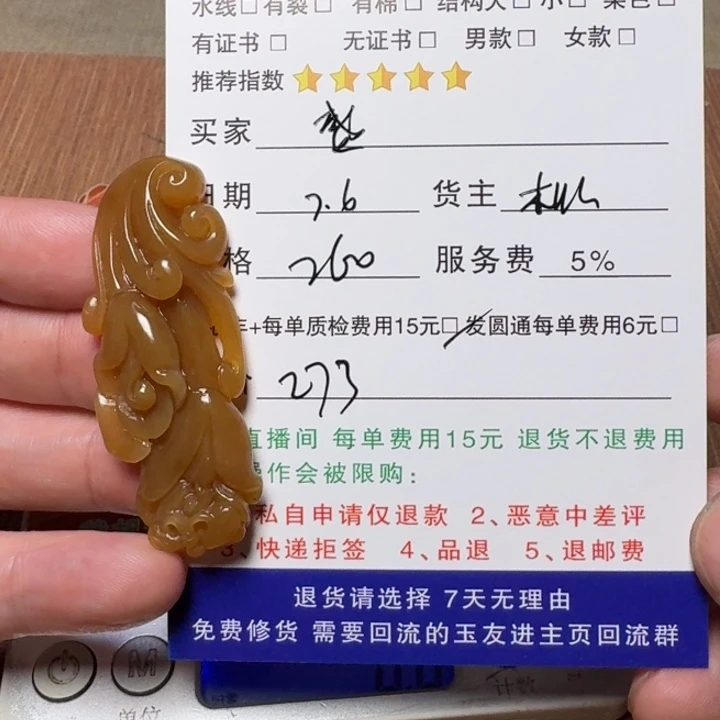 水线□有裂□ 有棉□ 结构大□ 小□ 染色□
有证书□ 无证书□ 男款□ 女款□
推荐指数
买家
日期 7.6 货主
格 260 服务费 5%
+每单质检费用15元□ 发圆通每单费用6元□
273
直播间 每单费用15元 退货不退费用
操作会被限购:
私自申请仅退款 2、恶意中差评
3、快递拒签 4、品退 5、退邮费
退货请选择 7天无理由
免费修货 需要回流的玉友进主页回流群
M
单位
计数